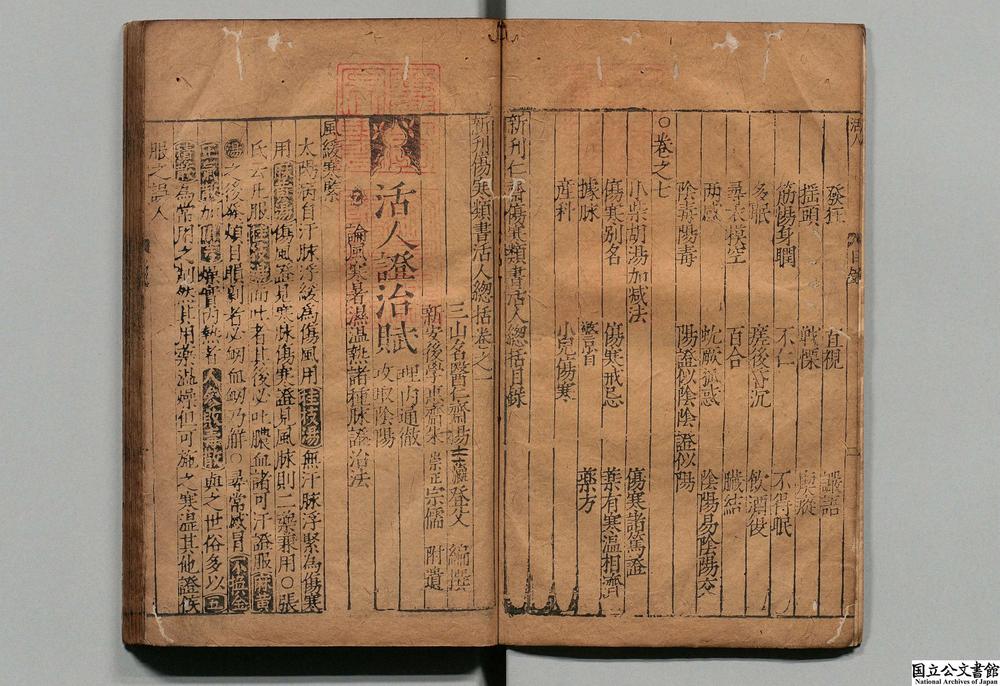 發狂 直視 譫語
搖頭 戰慄
筋惕身瞤 不仁 不得眠
多眠 瘥後昏沉 飲酒後
尋衣摸空 百合 臟結
兩感 蚘厥狐惑 陰陽易陰陽交
陰毒陽毒 陽證似陰陰證似陽
○卷之七
小柴胡湯加減法 傷寒諸篤證
傷寒別名 傷寒戒忌 藥有寒温相濟
據脉 藥方
產科 小兒傷寒
新刊仁齋傷寒類書活人總括目錄
新刊傷寒類書活人總括卷之一
三山名醫仁齋楊士瀛登父 編撰
新安後學惠齋朱崇正宗儒 附遺
活人證治賦 理内通徹 攻取陰陽
論風寒暑濕温熱諸種脉證治法
風緩寒緊
太陽病自汗脉浮緩為傷風用桂枝湯無汗脉浮緊為傷寒
用麻黃湯傷風證見寒脉傷寒證見風脉則二藥兼用○張
氏云凡服桂枝湯而吐者其後必吐膿血諸可汗證服麻黃
湯之後發煩目瞑劇者必衂血衂乃解○尋常感冒不換金
正氣散加 燥實内熱者人參敗毒散與之世俗多以五
積散為常用之劑然其用藥溫燥但可施之寒温其他證候
服之誤人
国立公文書館
National Archives of Japan